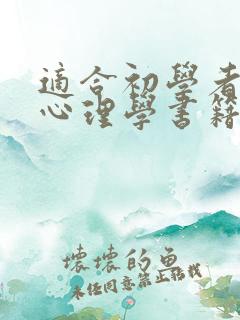 適合初學者
心理學書籍
壞壞的魚
未经同意禁止转载